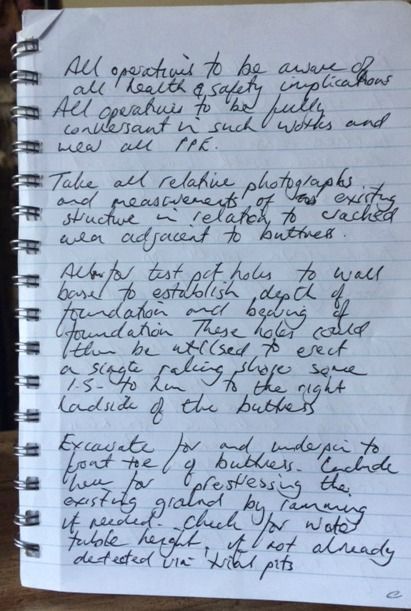 All operatives to be aware of
all health & safety implications
All operatives to be fully
conversant in such works and
wear all PPE.
Take all relative photographs
and measurements of existing
structure in relation to cracked
area adjacent to buttress.
Allow for test pit holes to wall
base to establish depth of
foundation and bearing of
foundation These holes could
then be utilised to erect
a single raking shore some
1.5- to 2m to the right
handside of the buttress
Excavate for and underpin to
front toe of buttress. Include
here for prestressing the
existing ground by ramming
if needed. Check for water
table height, if not already
detected via trial pits